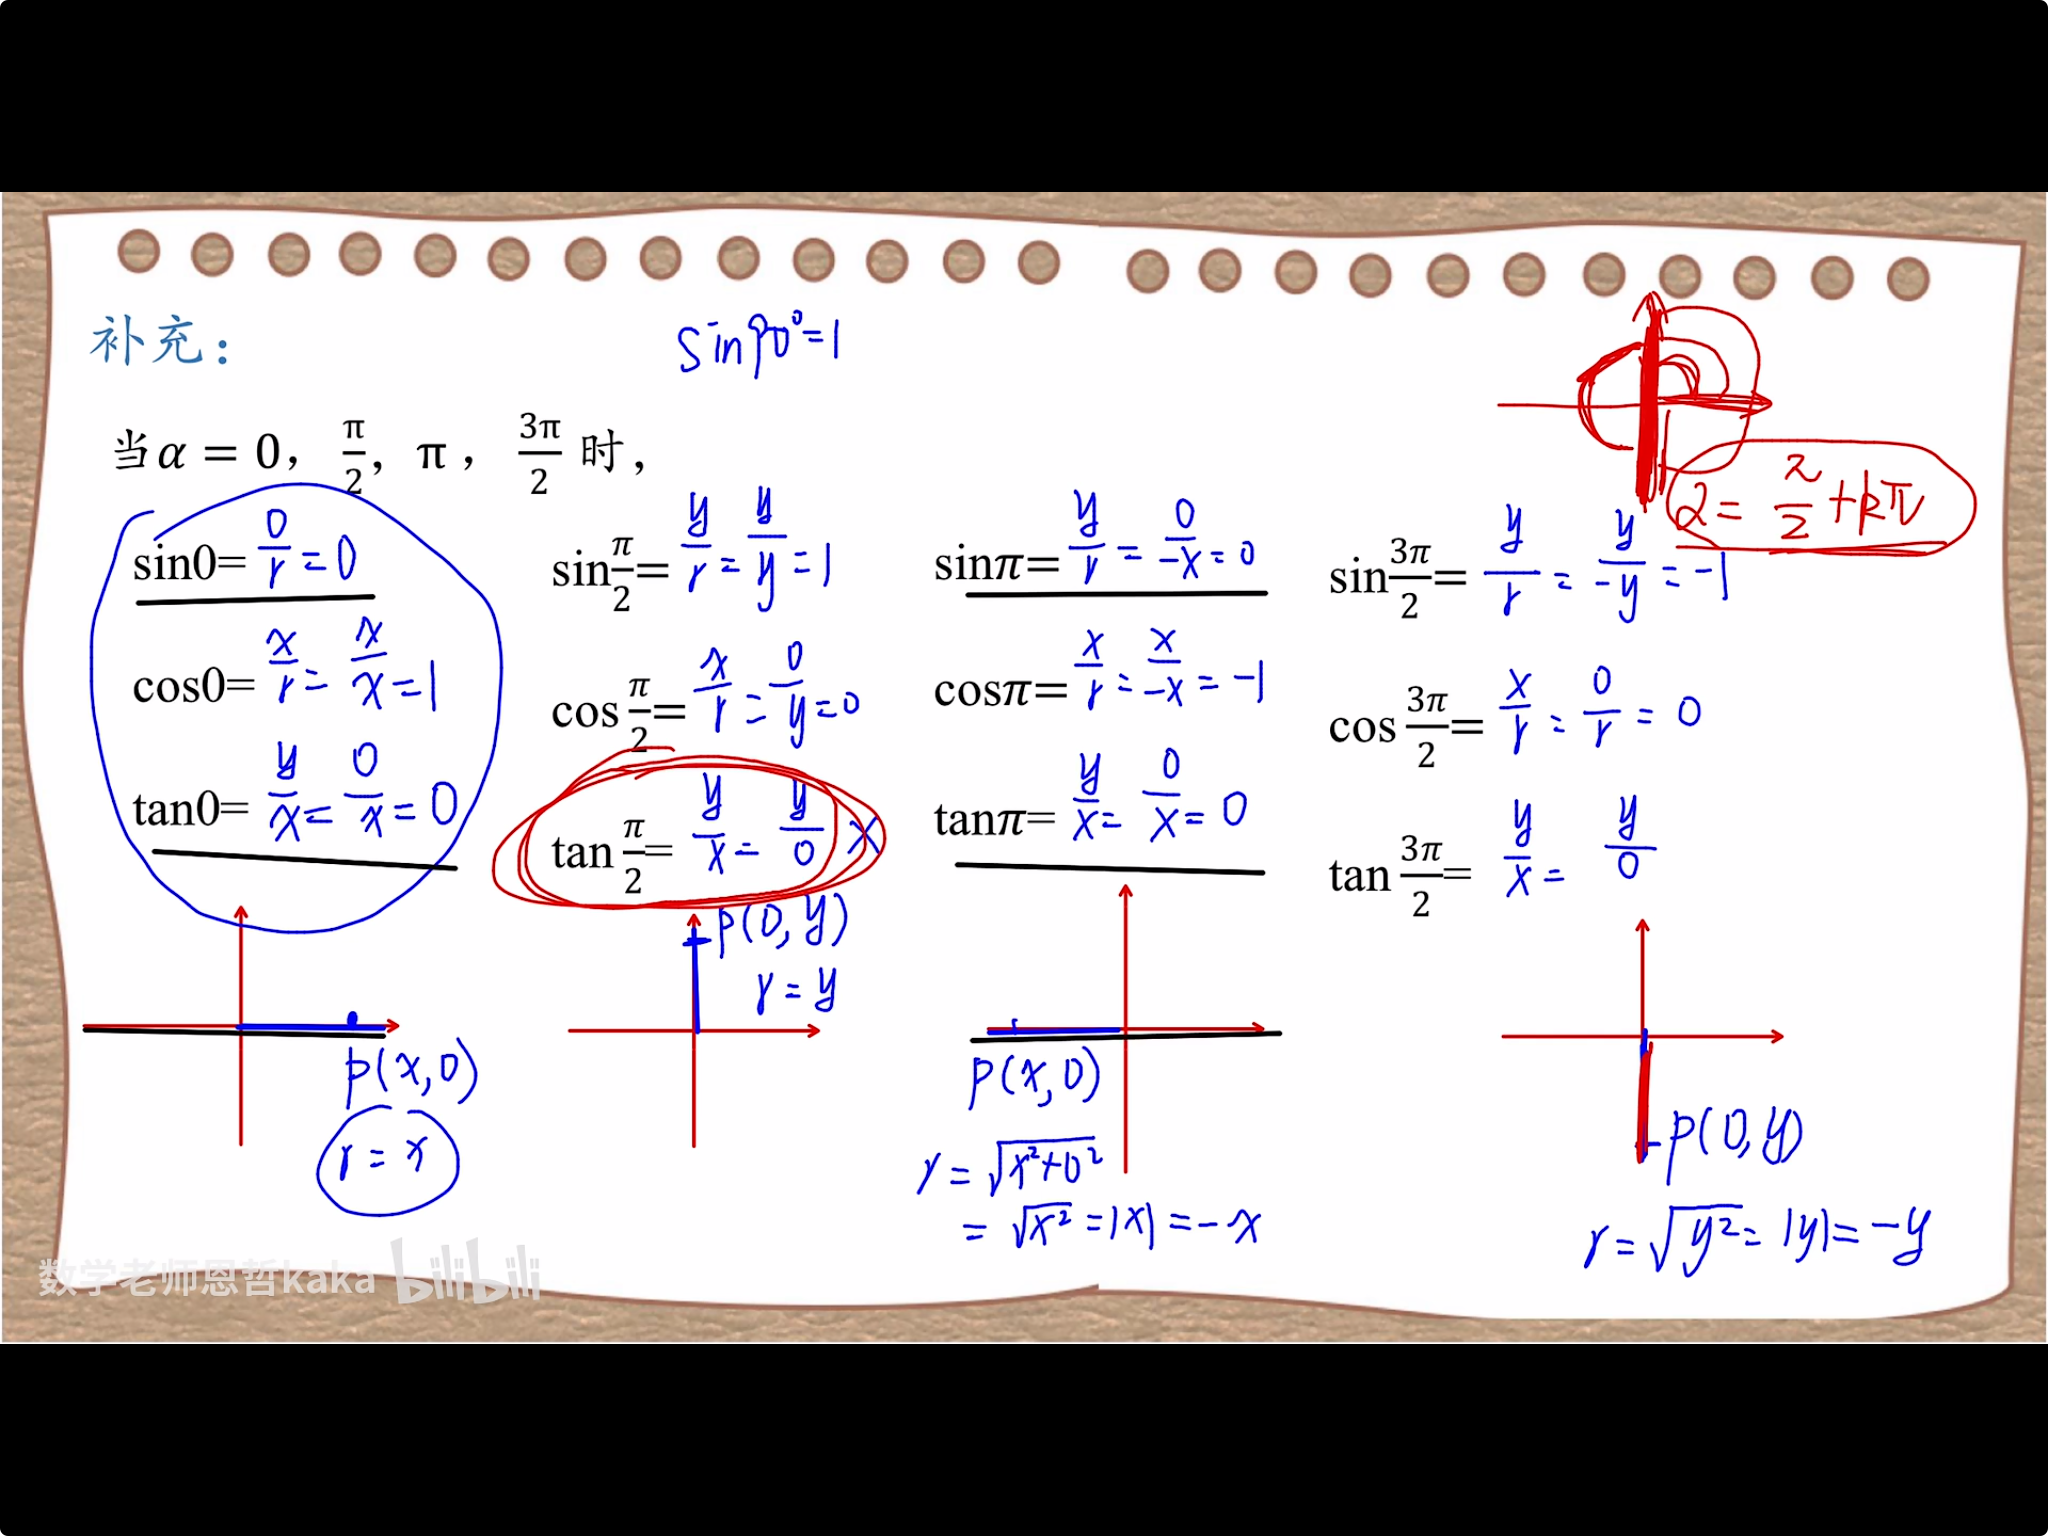 补充：
sin90°=1
当α = 0， π/2， π， 3π/2 时，
α = π/2 + kπ
sin0= 0/r = 0
cos0= x/r = x/x = 1
tan0= y/x = 0/x = 0
p(x,0)
r = x
sin π/2 = y/r = y/y = 1
cos π/2 = x/r = 0/y = 0
tan π/2 = y/x = y/0 ×
p(0, y)
r = y
sinπ= y/r = 0/-x = 0
cosπ= x/r = x/-x = -1
tanπ= y/x = 0/x = 0
p(x,0)
r = √x²+0²
= √x² = |x| = -x
sin 3π/2 = y/r = y/-y = -1
cos 3π/2 = x/r = 0/r = 0
tan 3π/2 = y/x = y/0
p(0,y)
r = √y² = |y| = -y
数学老师恩哲kaka bilibili